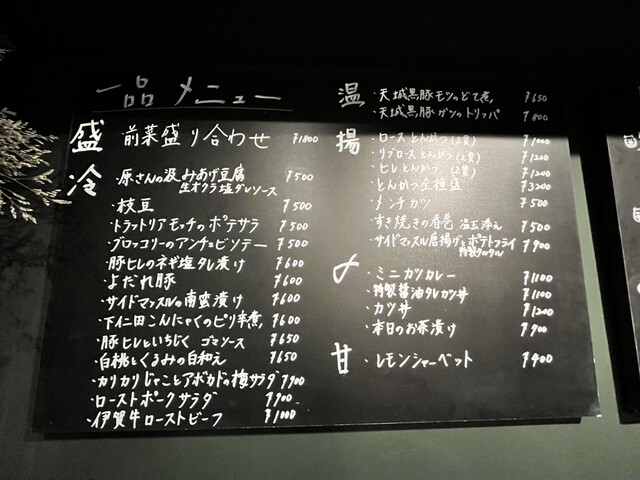 一品メニュー
盛
・前菜盛り合わせ ¥1800
冷
・原さんの汲みあげ豆腐 ¥500
生オクラ塩ダレソース
・枝豆 ¥500
・トラットリアモッチのポテサラ ¥500
・ブロッコリーのアンチョビソテー ¥500
・豚ヒレのネギ塩タレ漬け ¥600
・よだれ豚 ¥600
・サイドマッスルの南蛮漬け ¥600
・下仁田こんにゃくのピリ辛煮 ¥600
・豚ヒレといちじく ゴマソース ¥650
・白桃とくるみの白和え ¥650
・カリカリじゃことアボカドの梅サラダ ¥900
・ローストポークサラダ ¥900
・伊賀牛ローストビーフ ¥1000
温
・天城黒豚モツのどて煮 ¥650
・天城黒豚ガツのトリッパ ¥800
揚
・ロースとんかつ(2貫) ¥1000
・リブロースとんかつ(2貫) ¥1200
・ヒレとんかつ(2貫) ¥1200
・とんかつ全種盛 ¥3200
・メンチカツ ¥500
・すき焼きの春巻 温玉添え ¥500
・サイドマッスル唐揚げとポテトフライ ¥900
特製タルタル
〆
・ミニカツカレー ¥1100
・特製醤油タレカツ丼 ¥1100
・カツ丼 ¥1200
・本日のお茶漬け ¥900
甘
・レモンシャーベット ¥400